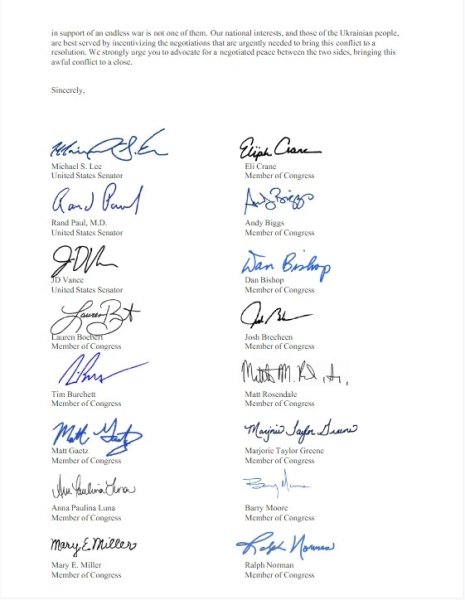 in support of an endless war is not one of them. Our national interests, and those of the Ukrainian people,
are best served by incentivizing the negotiations that are urgently needed to bring this conflict to a
resolution. We strongly urge you to advocate for a negotiated peace between the two sides, bringing this
awful conflict to a close.
Sincerely,
Michael S. Lee
United States Senator
Elijah Crane
Eli Crane
Member of Congress
Rand Paul
Rand Paul, M.D.
United States Senator
Andy Biggs
Andy Biggs
Member of Congress
JD Vance
United States Senator
Dan Bishop
Dan Bishop
Member of Congress
Lauren Boebert
Member of Congress
Josh Brecheen
Member of Congress
Tim Burchett
Member of Congress
Matt Rosendale
Member of Congress
Matt Gaetz
Matt Gaetz
Member of Congress
Marjorie Taylor Greene
Marjorie Taylor Greene
Member of Congress
Anna Paulina Luna
Anna Paulina Luna
Member of Congress
Barry Moore
Barry Moore
Member of Congress
Mary E. Miller
Mary E. Miller
Member of Congress
Ralph Norman
Ralph Norman
Member of Congress